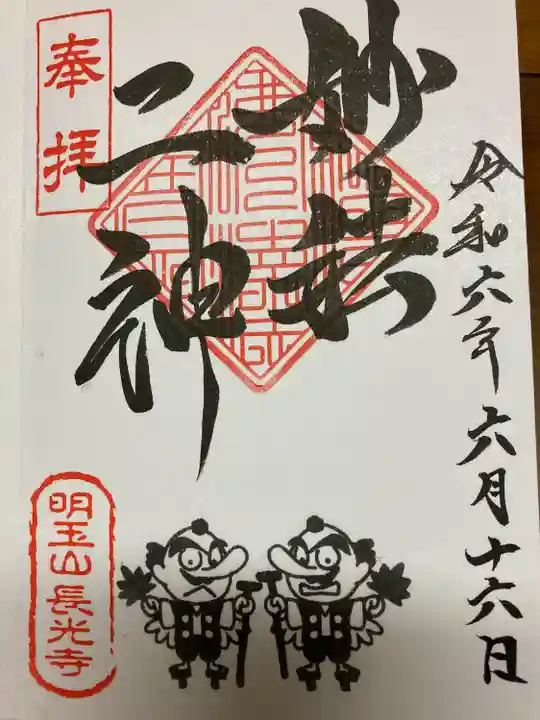 奉拝
妙法
二神
令和六年六月十六日
明玉山長光寺